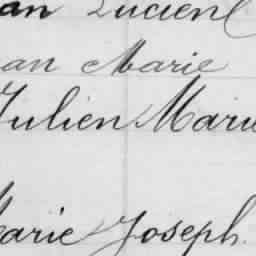 an Lucien
an Marie
Julien Marie
Marie Joseph